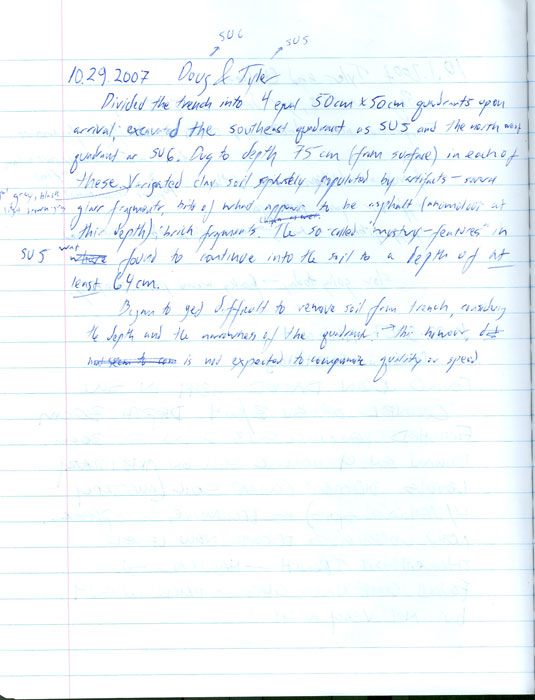 SU6
SU5
10.29.2007 Doug & Tyler
Divided the trench into 4 equal 50cm x 50cm quadrants upon
arrival; excavated the southeast quadrant as SU5 and the north west
quadrant as SU6. Dug to depth 75cm (from surface) in each of
these. Varigated clay soil populated by artifacts - several
gray, black
glass fragments, bits of what appears to be asphalt (anomalous at
this depth), brick fragments. The so called "mystery-features" in
SU5 was where found to continue into the soil to a depth of at
least 64cm.
Began to get difficult to remove soil from trench, considering
the depth and the narrowness of the quadrant. This however,
is not expected to compromise quality or speed